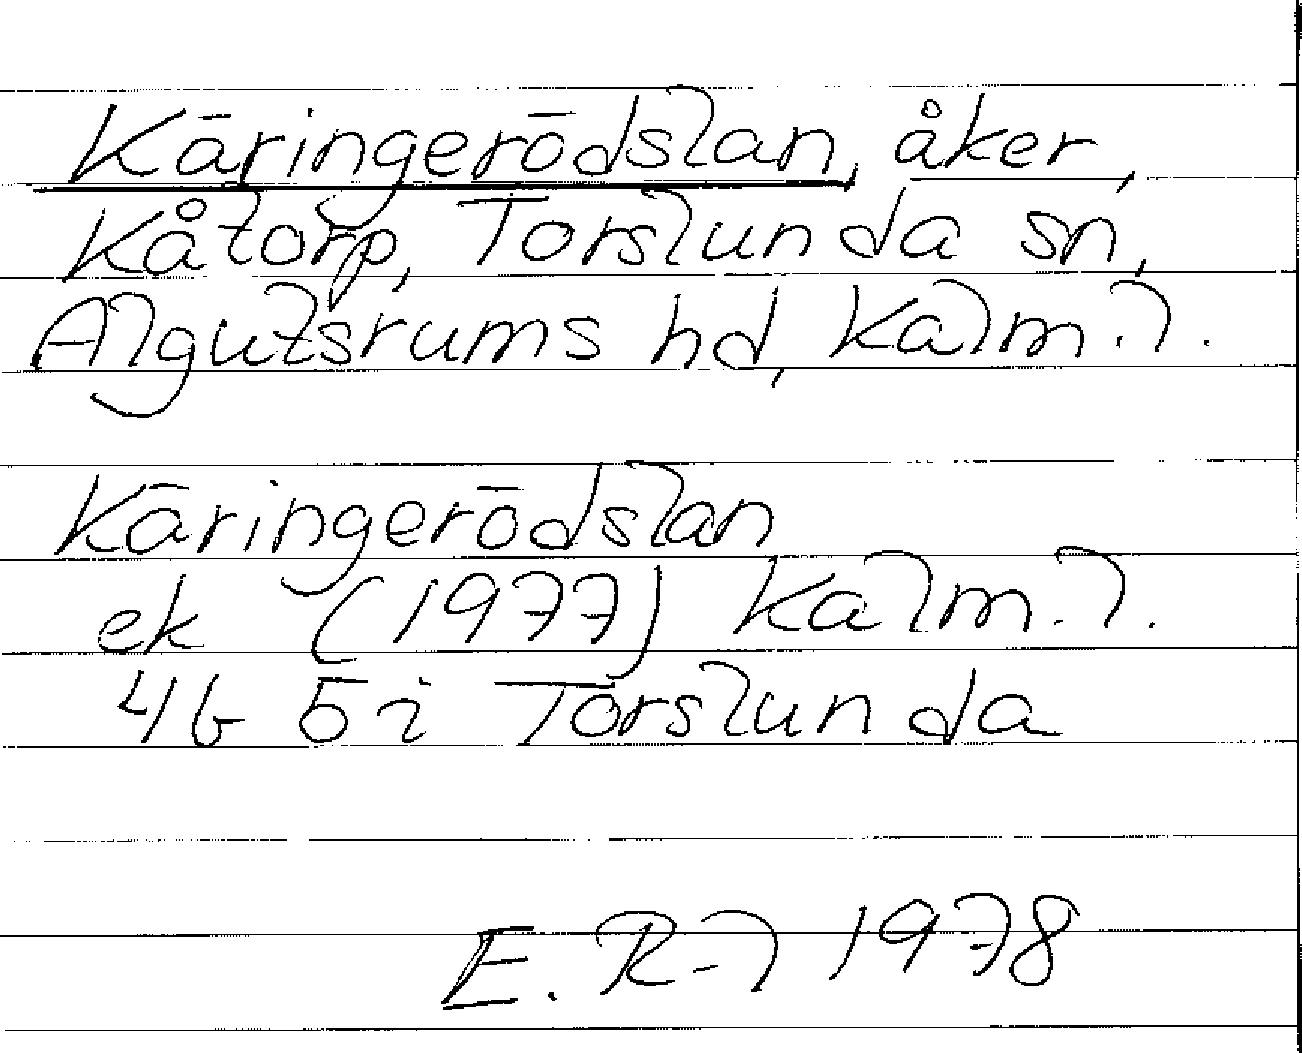 Käringerödslan, åker,
Kåtorp, Torslunda sn,
Algutsrums hd, Kalm.l.
Käringerödslan
ek (1977) Kalm.l.
4G 5i Torslunda
E. R-l 1978